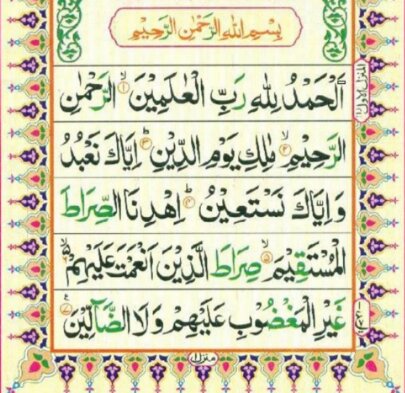 بِسْمِ اللهِ الرَّحْمٰنِ الرَّحِيْمِ
اَلْحَمْدُ لِلّٰهِ رَبِّ الْعٰلَمِيْنَ ۙ‏﴿۱﴾ الرَّحْمٰنِ
الرَّحِيْمِ ۙ‏﴿۲﴾ مٰلِكِ يَوْمِ الدِّيْنِ ؕ‏﴿۳﴾ اِيَّاكَ نَعْبُدُ
وَ اِيَّاكَ نَسْتَعِيْنُ ؕ‏﴿۴﴾ اِهْدِنَا الصِّرَاطَ
الْمُسْتَقِيْمَ ۙ‏﴿۵﴾ صِرَاطَ الَّذِيْنَ اَنْعَمْتَ عَلَيْهِمْ ۙ‏﴿۶﴾
غَيْرِ الْمَغْضُوْبِ عَلَيْهِمْ وَ لَا الضَّآلِّيْنَ ‏﴿۷﴾
منزل ۱